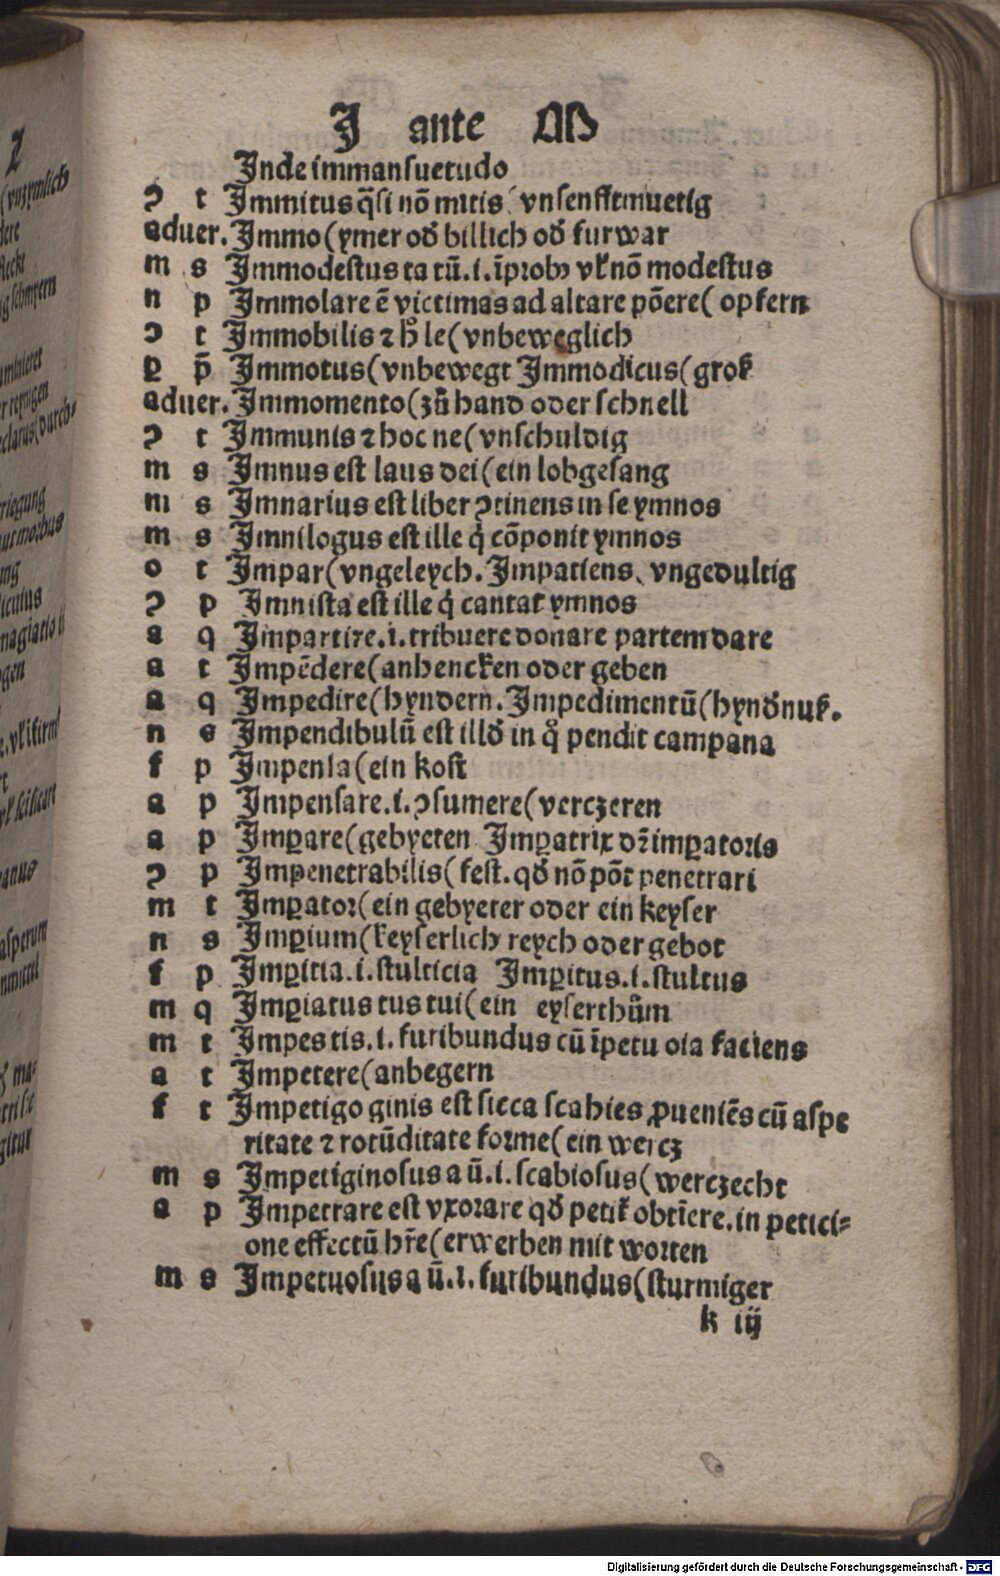 J ante M
Inde immansuetudo
ↄ t Immitus q̄si nō mitis vnsenfftmuetig
aduer. Immo (ymer od̕ billich od̕ furwar
m s Immodestus ta tū .i. īprobꝰ vł nō modestus
n p Immolare ē victimas ad altare pōere (opfern
ↄ t Immobilis ⁊ h̊ le (vnbeweglich
ꝑ p̄ Immotus (vnbewegt Immodicus (groß
aduer. Immomento (zů hand oder schnell
ↄ t Immunis ⁊ hoc ne (vnschuldig
m s Imnus est laus dei (ein lobgesang
m s Imnarius est liber ↄtinens in se ymnos
m s Imnilogus est ille q̇ cōponit ymnos
o t Impar (vngeleych. Impatiens vngedultig
ↄ p Imnista est ille q̇ cantat ymnos
a q Impartire .i. tribuere donare partem dare
a t Impēdere (anhencken oder geben
a q Impedire (hyndern. Impedimentū (hynd̕nuß.
n s Impendibulū est illd̕ in q̊ pendit campana
f p Impensa (ein kost
a p Impensare .i. ↄsumere (verczeren
a p Imꝑare (gebyeten Imꝑatrix dr̄ imꝑatoris
ↄ p Impenetrabilis (fest. qd̕ nō pōt penetrari
m t Imꝑator (ein gebyeter oder ein keyser
n s Imꝑium (keyserlich reych oder gebot
f p Imꝑitia .i. stulticia Imꝑitus .i. stultus
m q Imꝑiatus tus tui (ein eyserthům
m t Impes tis .i. furibundus cū īpetu oīa faciens
a t Impetere (anbegern
f t Impetigo ginis est sicca scabies ꝓueniēs cū aspe
ritate ⁊ rotūditate forme (ein wercz
m s Impetiginosus a ū .i. scabiosus (werczecht
a p Impetrare est vxorare qd̕ petit̕ obtīere. in petici⸗
one effectū hr̄e (erwerben mit worten
m s Impetuosus a ū .i. furibundus (sturmiger
k iij
Digitalisierung gefördert durch die Deutsche Forschungsgemeinschaft - DFG